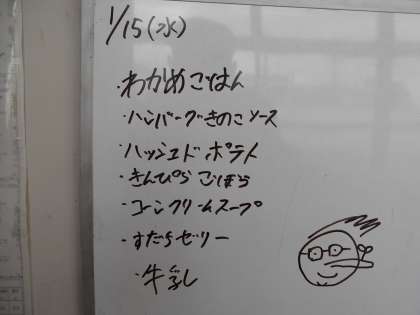 1/15(水)
・わかめごはん
・ハンバーグきのこソース
・ハッシュドポテト
・きんぴらごぼう
・コーンクリームスープ
・すだちゼリー
・牛乳